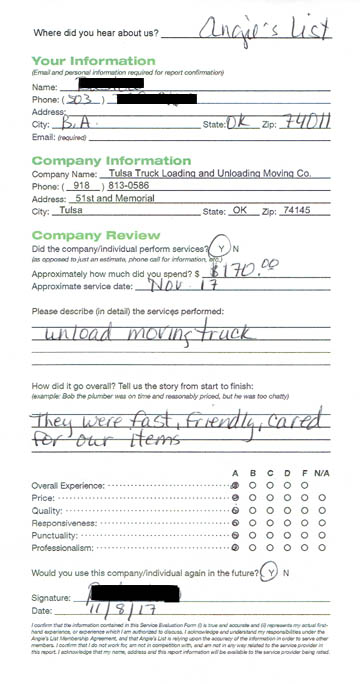 Where did you hear about us? Angie's List
Your Information
(Email and personal information required for report confirmation)
Name:
Phone: (303 )
Address:
City: B.A. State: OK Zip: 74011
Email: (required)
Company Information
Company Name: Tulsa Truck Loading and Unloading Moving Co.
Phone: ( 918 ) 813-0586
Address: 51st and Memorial
City: Tulsa State: OK Zip: 74145
Company Review
Did the company/individual perform services? Y N
(as opposed to just an estimate, phone call for information, etc.)
Approximately how much did you spend? $ $170.00
Approximate service date: Nov. 17
Please describe (in detail) the services performed:
unload moving truck
How did it go overall? Tell us the story from start to finish:
(example: Bob the plumber was on time and reasonably priced, but he was too chatty)
They were fast, friendly, cared
for our items
A B C D F N/A
Overall Experience:
Price:
Quality:
Responsiveness:
Punctuality:
Professionalism:
Would you use this company/individual again in the future? Y N
Signature:
Date: 11/8/17
I confirm that the information contained in this Service Evaluation Form (i) is true and accurate and (ii) represents my actual first-
hand experience, or experience which I am authorized to discuss. I acknowledge and understand my responsibilities under the
Angie's List Membership Agreement, and that Angie's List is relying upon the accuracy of the information in order to serve other
members. I confirm that I do not work for, am not in competition with, and am not in any way related to the service provider in
this report. I acknowledge that my name, address and this report information will be available to the service provider being rated.